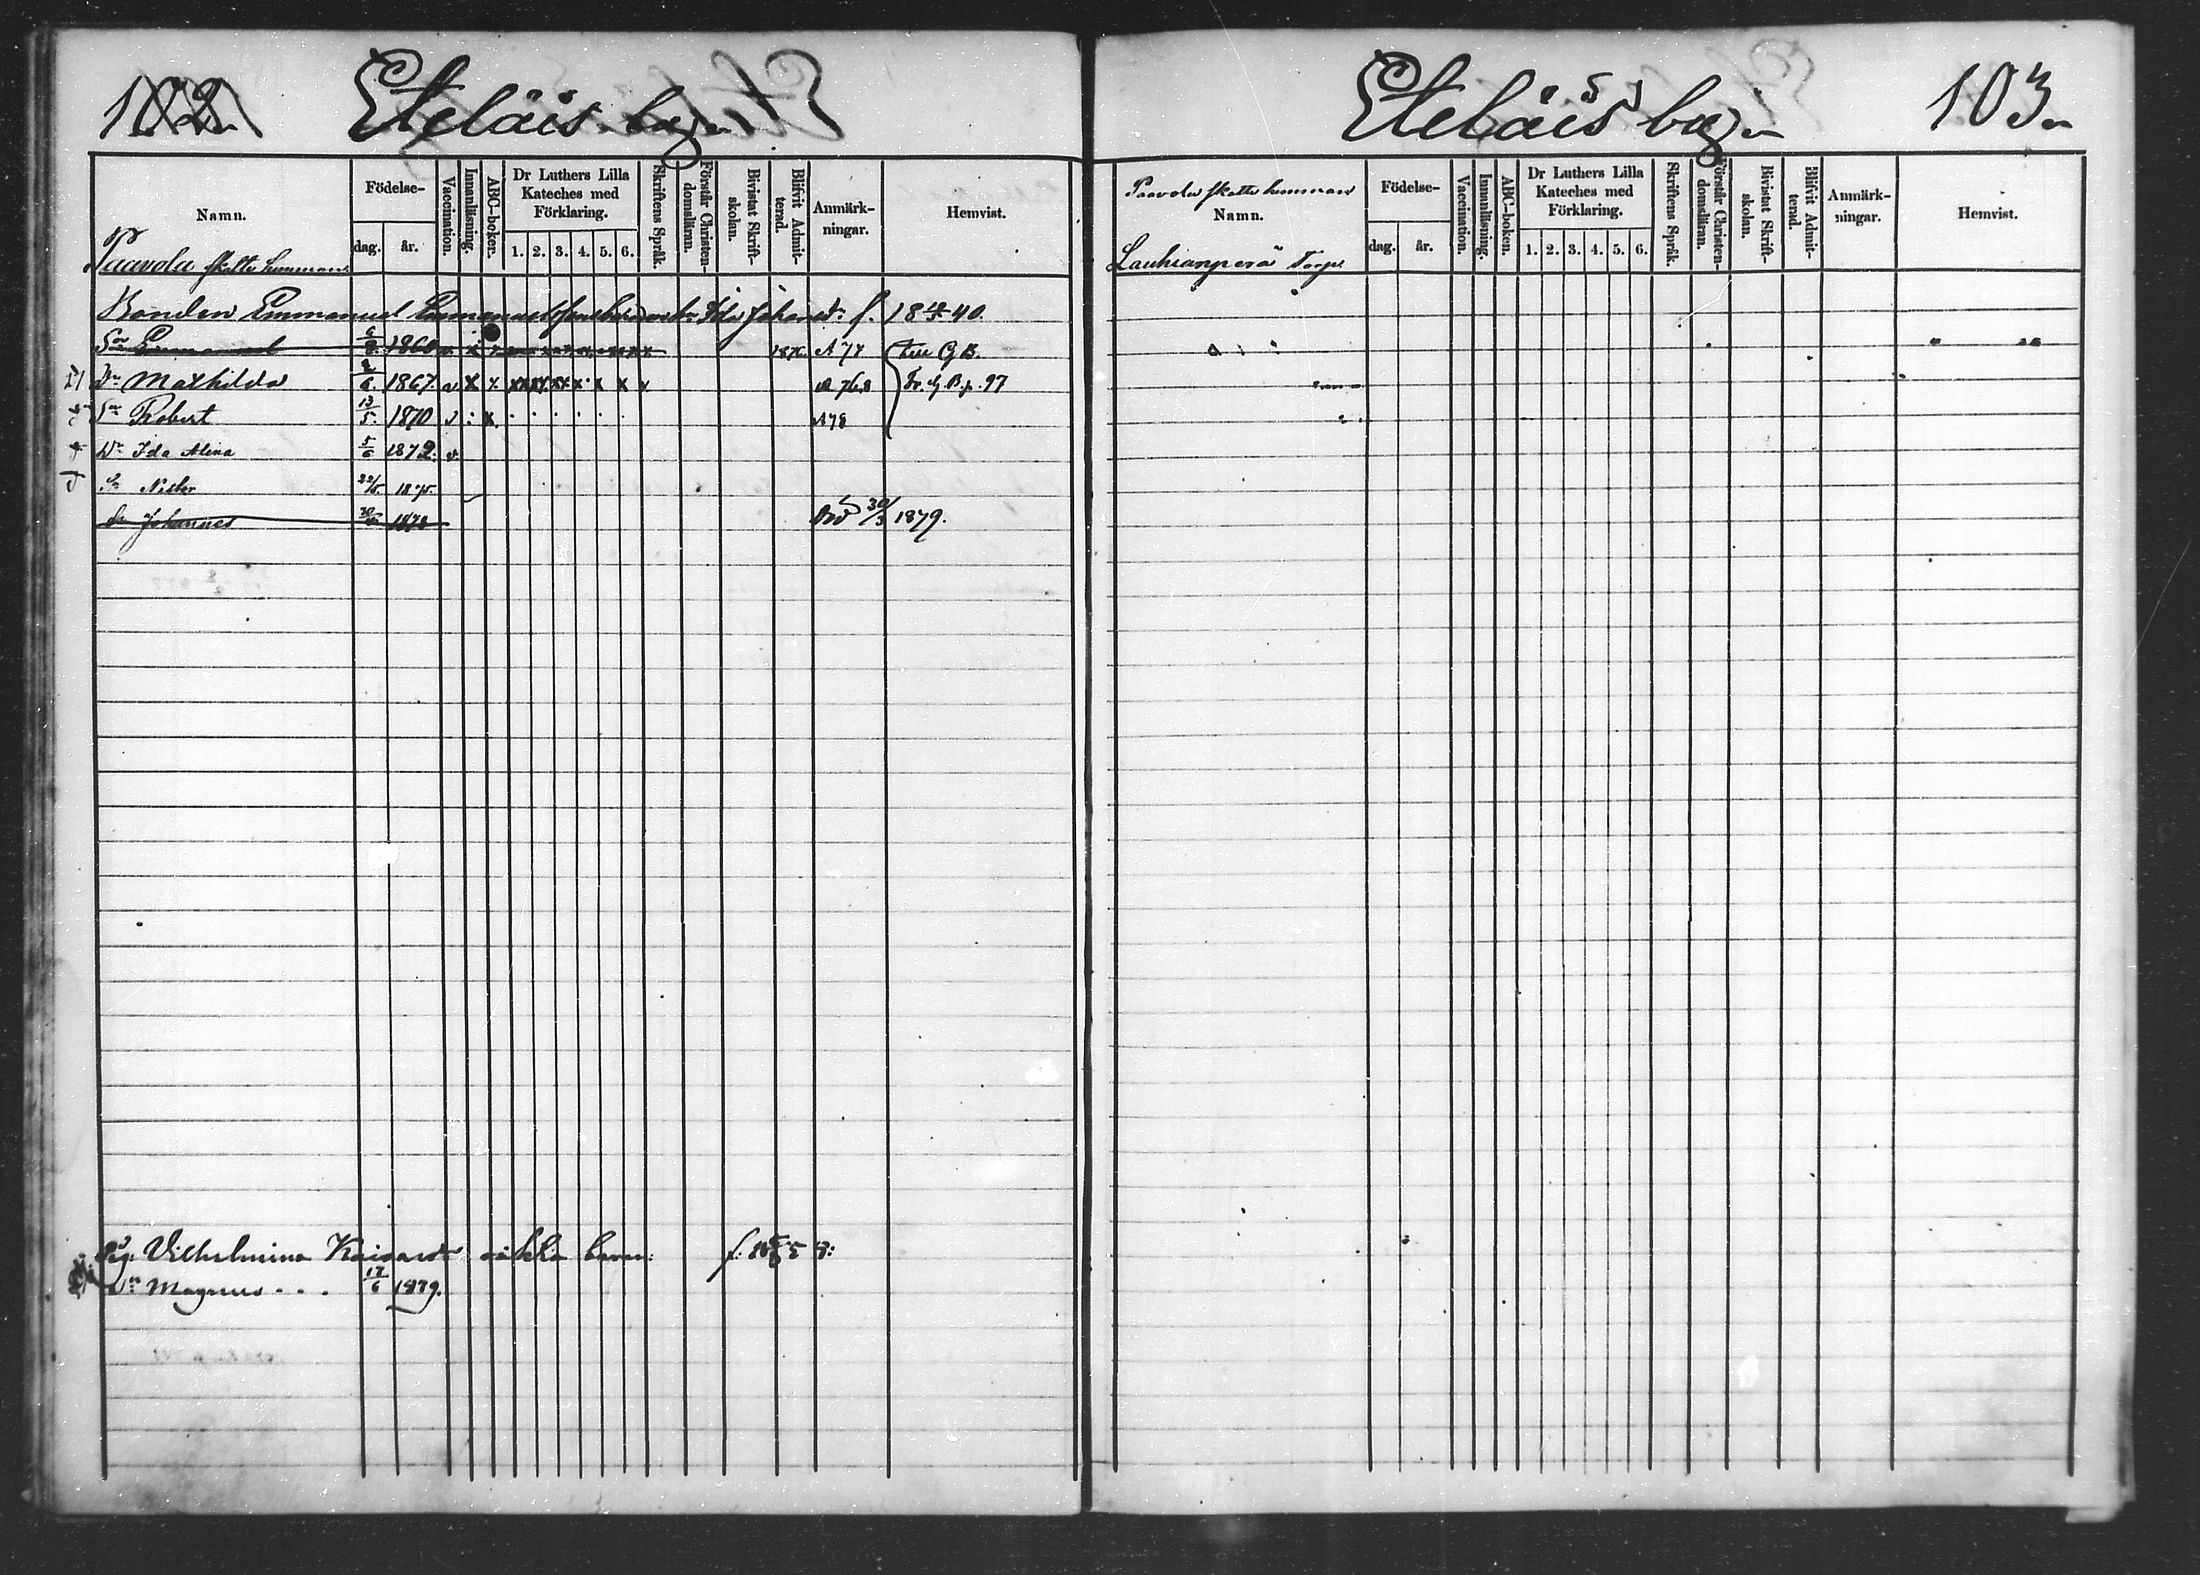 102.
Eteläis by.
Namn.
Födelse-
dag.
år.
Vaccination.
Innanläsning.
ABC-boken.
Dr Luthers Lilla
Kateches med
Förklaring.
1. 2. 3. 4. 5. 6.
Skriftens Språk.
Förstår Christen-
domsläran.
Bivistat Skrift-
skolan.
Blifvit Admit-
terad.
Anmärk-
ningar.
Hemvist.
Paavola skatte hemman
Bonden Emmanuel Ida f. 40.
Sn Emmanuel 1860 A 77 G B.
Dr Mathilda 2/6 1867. v x x x G. B. p. 97
Sn Robert 13/5. 1870 v A 78
Dr Ida Alina 5/6 1872. v.
Sn 1875.
Sn Johannes 1878 Död 30/3 1879.
Pig. Vilhelmina f:
Magnus . . . 17/6 1879.
Eteläis by.
103.
Paavola skatte hemman
Namn.
Födelse-
dag.
år.
Vaccination.
Innanläsning.
ABC-boken.
Dr Luthers Lilla
Kateches med
Förklaring.
1. 2. 3. 4. 5. 6.
Skriftens Språk.
Förstår Christen-
domsläran.
Bivistat Skrift-
skolan.
Blifvit Admit-
terad.
Anmärk-
ningar.
Hemvist.
Lauhianperä Torp.